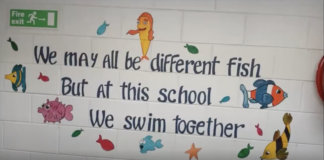 Fire
exit
We may all be different fish
But at this school
We swim together